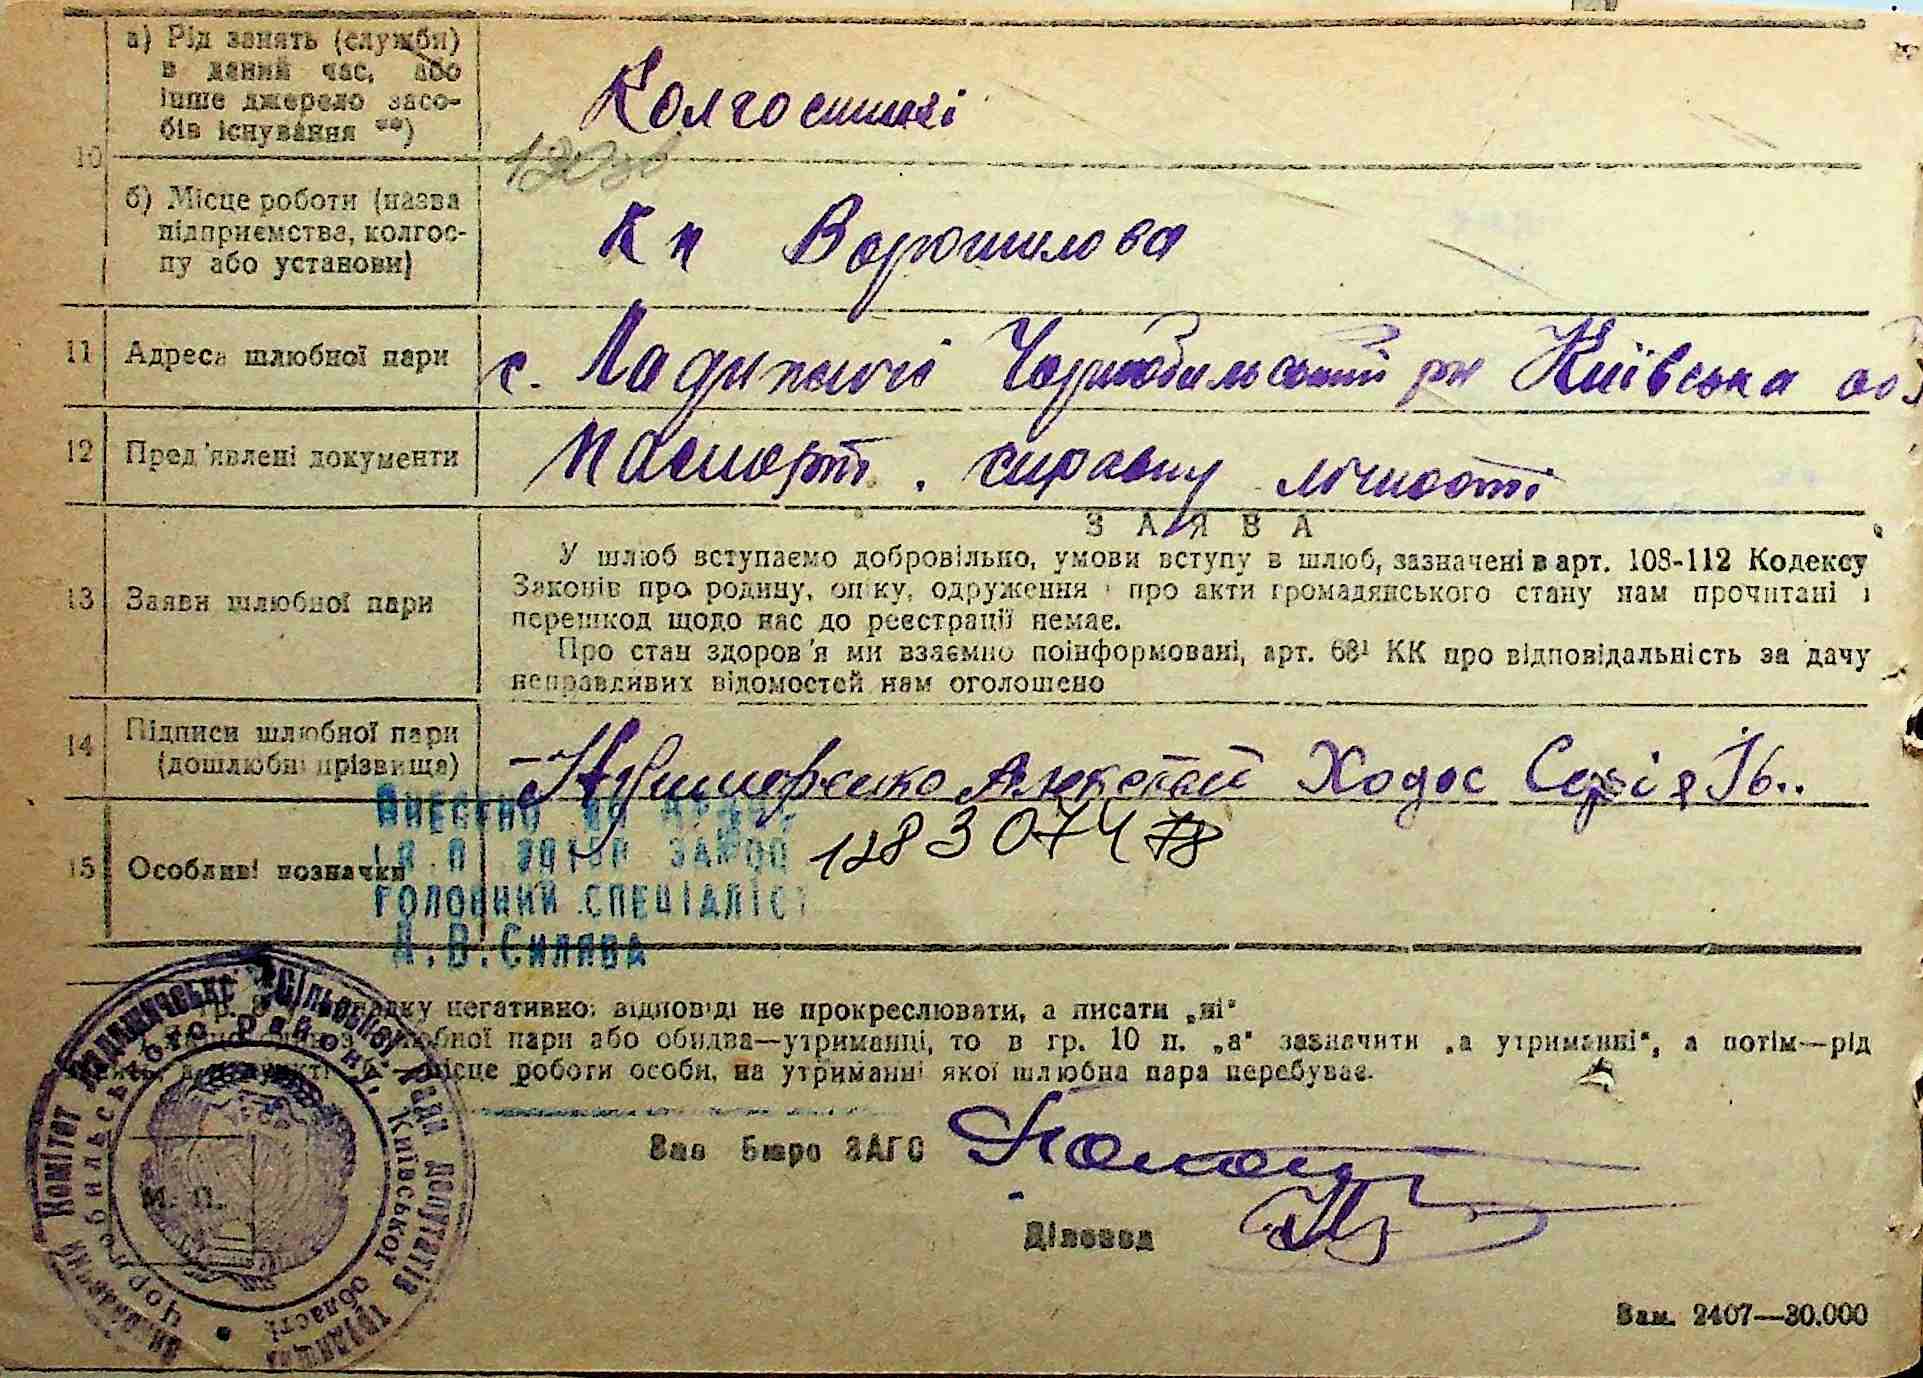 10
а) Рід занять (служби)
в даний час, або
інше джерело засо-
бів існування **)
Колгоспники
б) Місце роботи (назва
підприємства, колгос-
пу або установи)
Кп Ворошилова
11 Адреса шлюбної пари
с. Ладижичі Чорнобильський рн Київська об
12 Пред'явлені документи
Паспорт. справку лічності
ЗАЯВА
13 Заяви шлюбної пари
У шлюб вступаємо добровільно, умови вступу в шлюб, зазначені в арт. 108-112 Кодексу
Законів про родину, опіку, одруження і про акти громадянського стану нам прочитані і
перешкод щодо нас до реєстрації немає.
Про стан здоров'я ми взаємно поінформовані, арт. 68¹ КК про відповідальність за дачу
неправдивих відомостей нам оголошено
14 Підписи шлюбної пари
(дошлюбні прізвища)
Ходос
ВНЕСЕНО ДО
12830747
15 Особливі позначки
ГОЛОВНИЙ СПЕЦІАЛІСТ
Л.В.Силява
негативної відповіді не прокреслювати, а писати „ні“
шлюбної пари або обидва—утриманці, то в гр. 10 п. „а“ зазначити „на утриманні“, а потім—рід
місце роботи особи, на утриманні якої шлюбна пара перебуває.
Виконавчий Комітет Ладижичської Сільської Ради Депутатів Трудящих
Чорнобильського району, Київської області
М. П.
Зав Бюро ЗАГС
Діловод
Зам. 2407—30.000